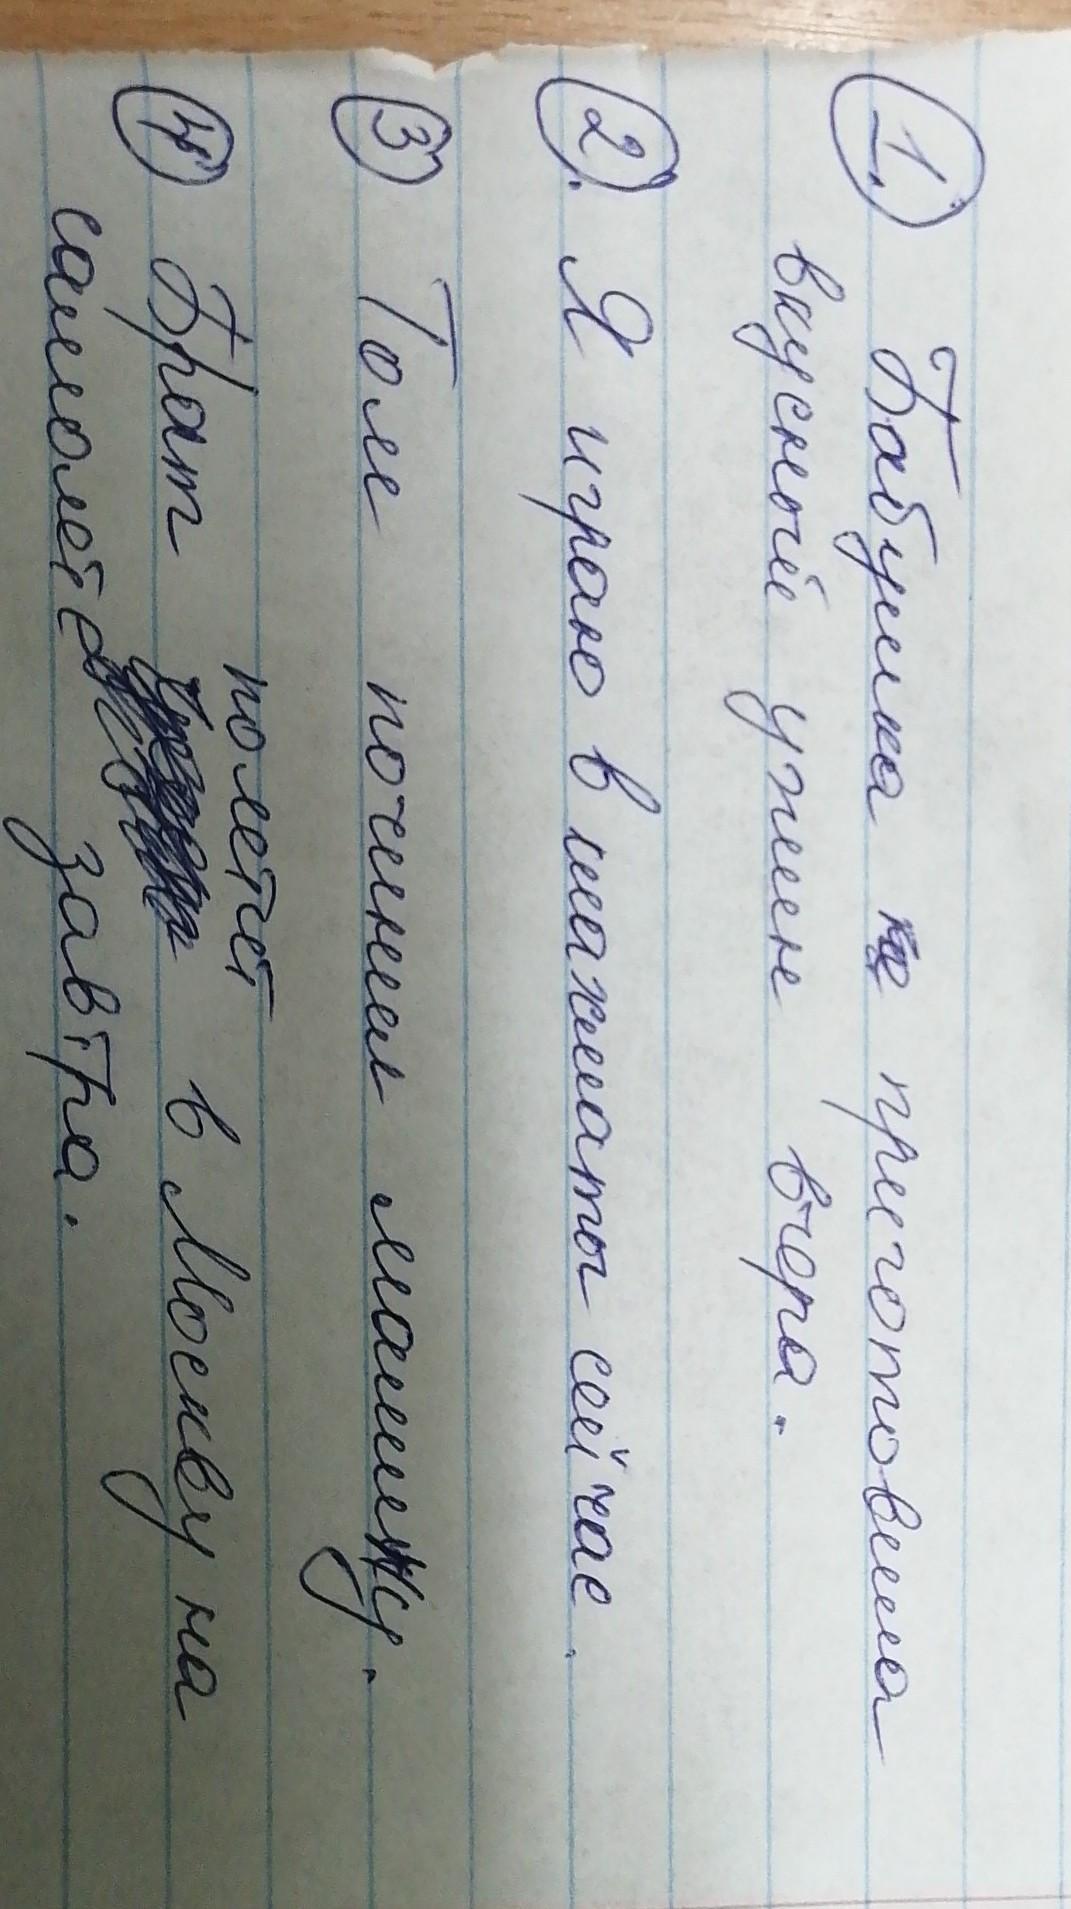 1. Бабушка приготовила
вкусный ужин вчера.
2. Я играю в шахматы сейчас.
3 Толе починил машину.
полетет
4 Брат в Москву на
самолёте завтра.